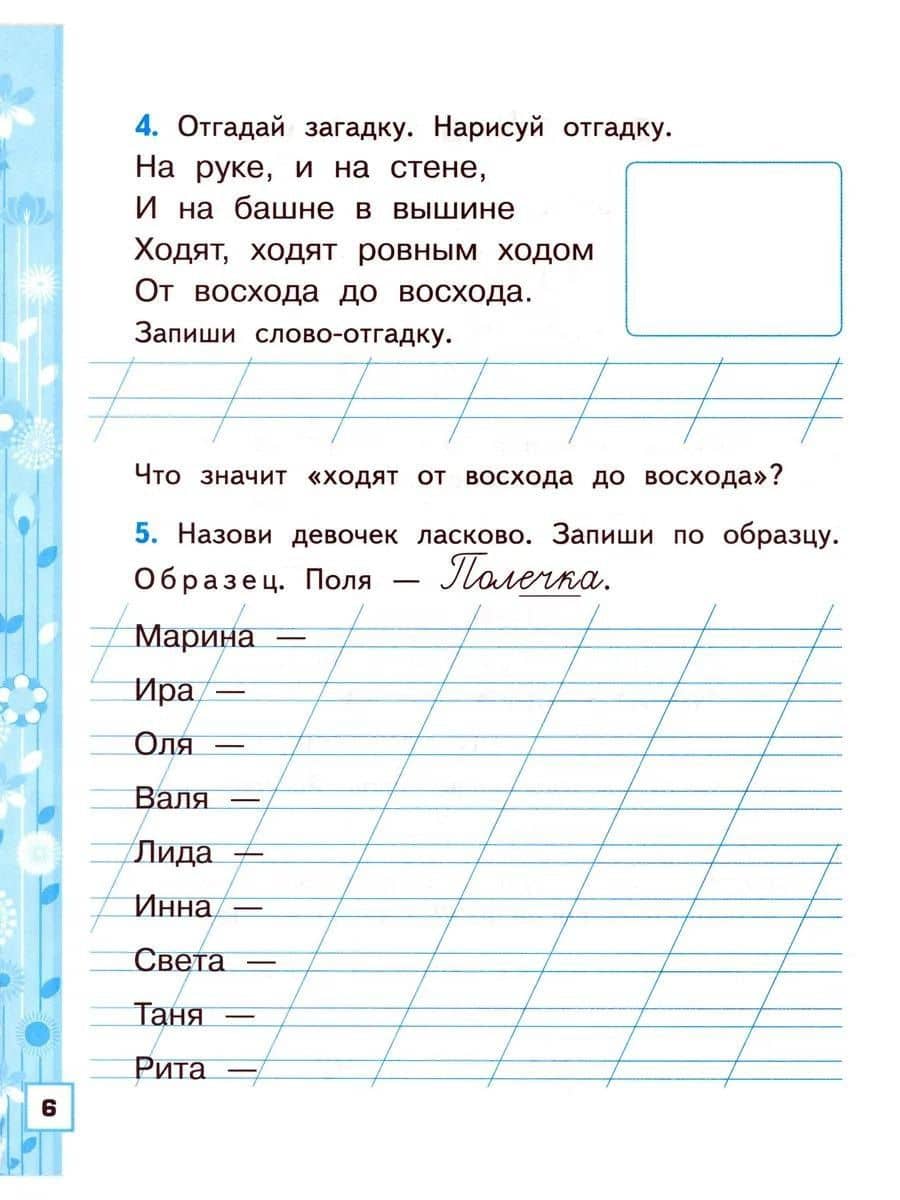 4. Отгадай загадку. Нарисуй отгадку.
На руке, и на стене,
И на башне в вышине
Ходят, ходят ровным ходом
От восхода до восхода.
Запиши слово-отгадку.
Что значит «ходят от восхода до восхода»?
5. Назови девочек ласково. Запиши по образцу.
Образец. Поля — Полечка.
Марина —
Ира —
Оля —
Валя —
Лида —
Инна —
Света —
Таня —
Рита —
6